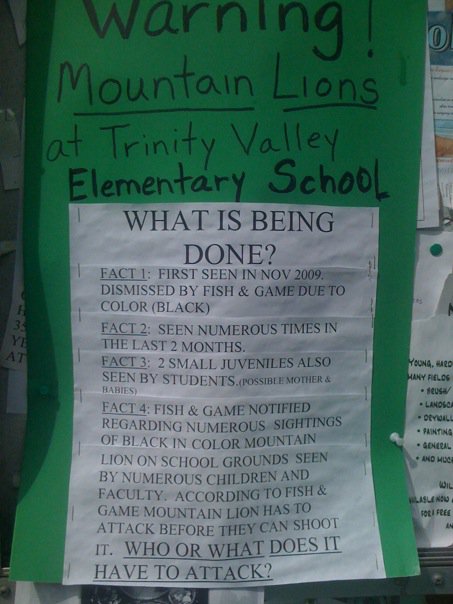 Warning!
Mountain Lions
at Trinity Valley
Elementary School
WHAT IS BEING
DONE?
FACT 1: FIRST SEEN IN NOV 2009.
DISMISSED BY FISH & GAME DUE TO
COLOR (BLACK)
FACT 2: SEEN NUMEROUS TIMES IN
THE LAST 2 MONTHS.
FACT 3: 2 SMALL JUVENILES ALSO
SEEN BY STUDENTS.(POSSIBLE MOTHER &
BABIES)
FACT 4: FISH & GAME NOTIFIED
REGARDING NUMEROUS SIGHTINGS
OF BLACK IN COLOR MOUNTAIN
LION ON SCHOOL GROUNDS SEEN
BY NUMEROUS CHILDREN AND
FACULTY. ACCORDING TO FISH &
GAME MOUNTAIN LION HAS TO
ATTACK BEFORE THEY CAN SHOOT
IT. WHO OR WHAT DOES IT
HAVE TO ATTACK?
YOUNG, HARD
MANY FIELDS
• BRUSH/
• LANDSCA
• DRYWALL
• PAINTING
• GENERAL
• AND MUCH
WIL
AVAILABLE NOW A
FOR A FREE